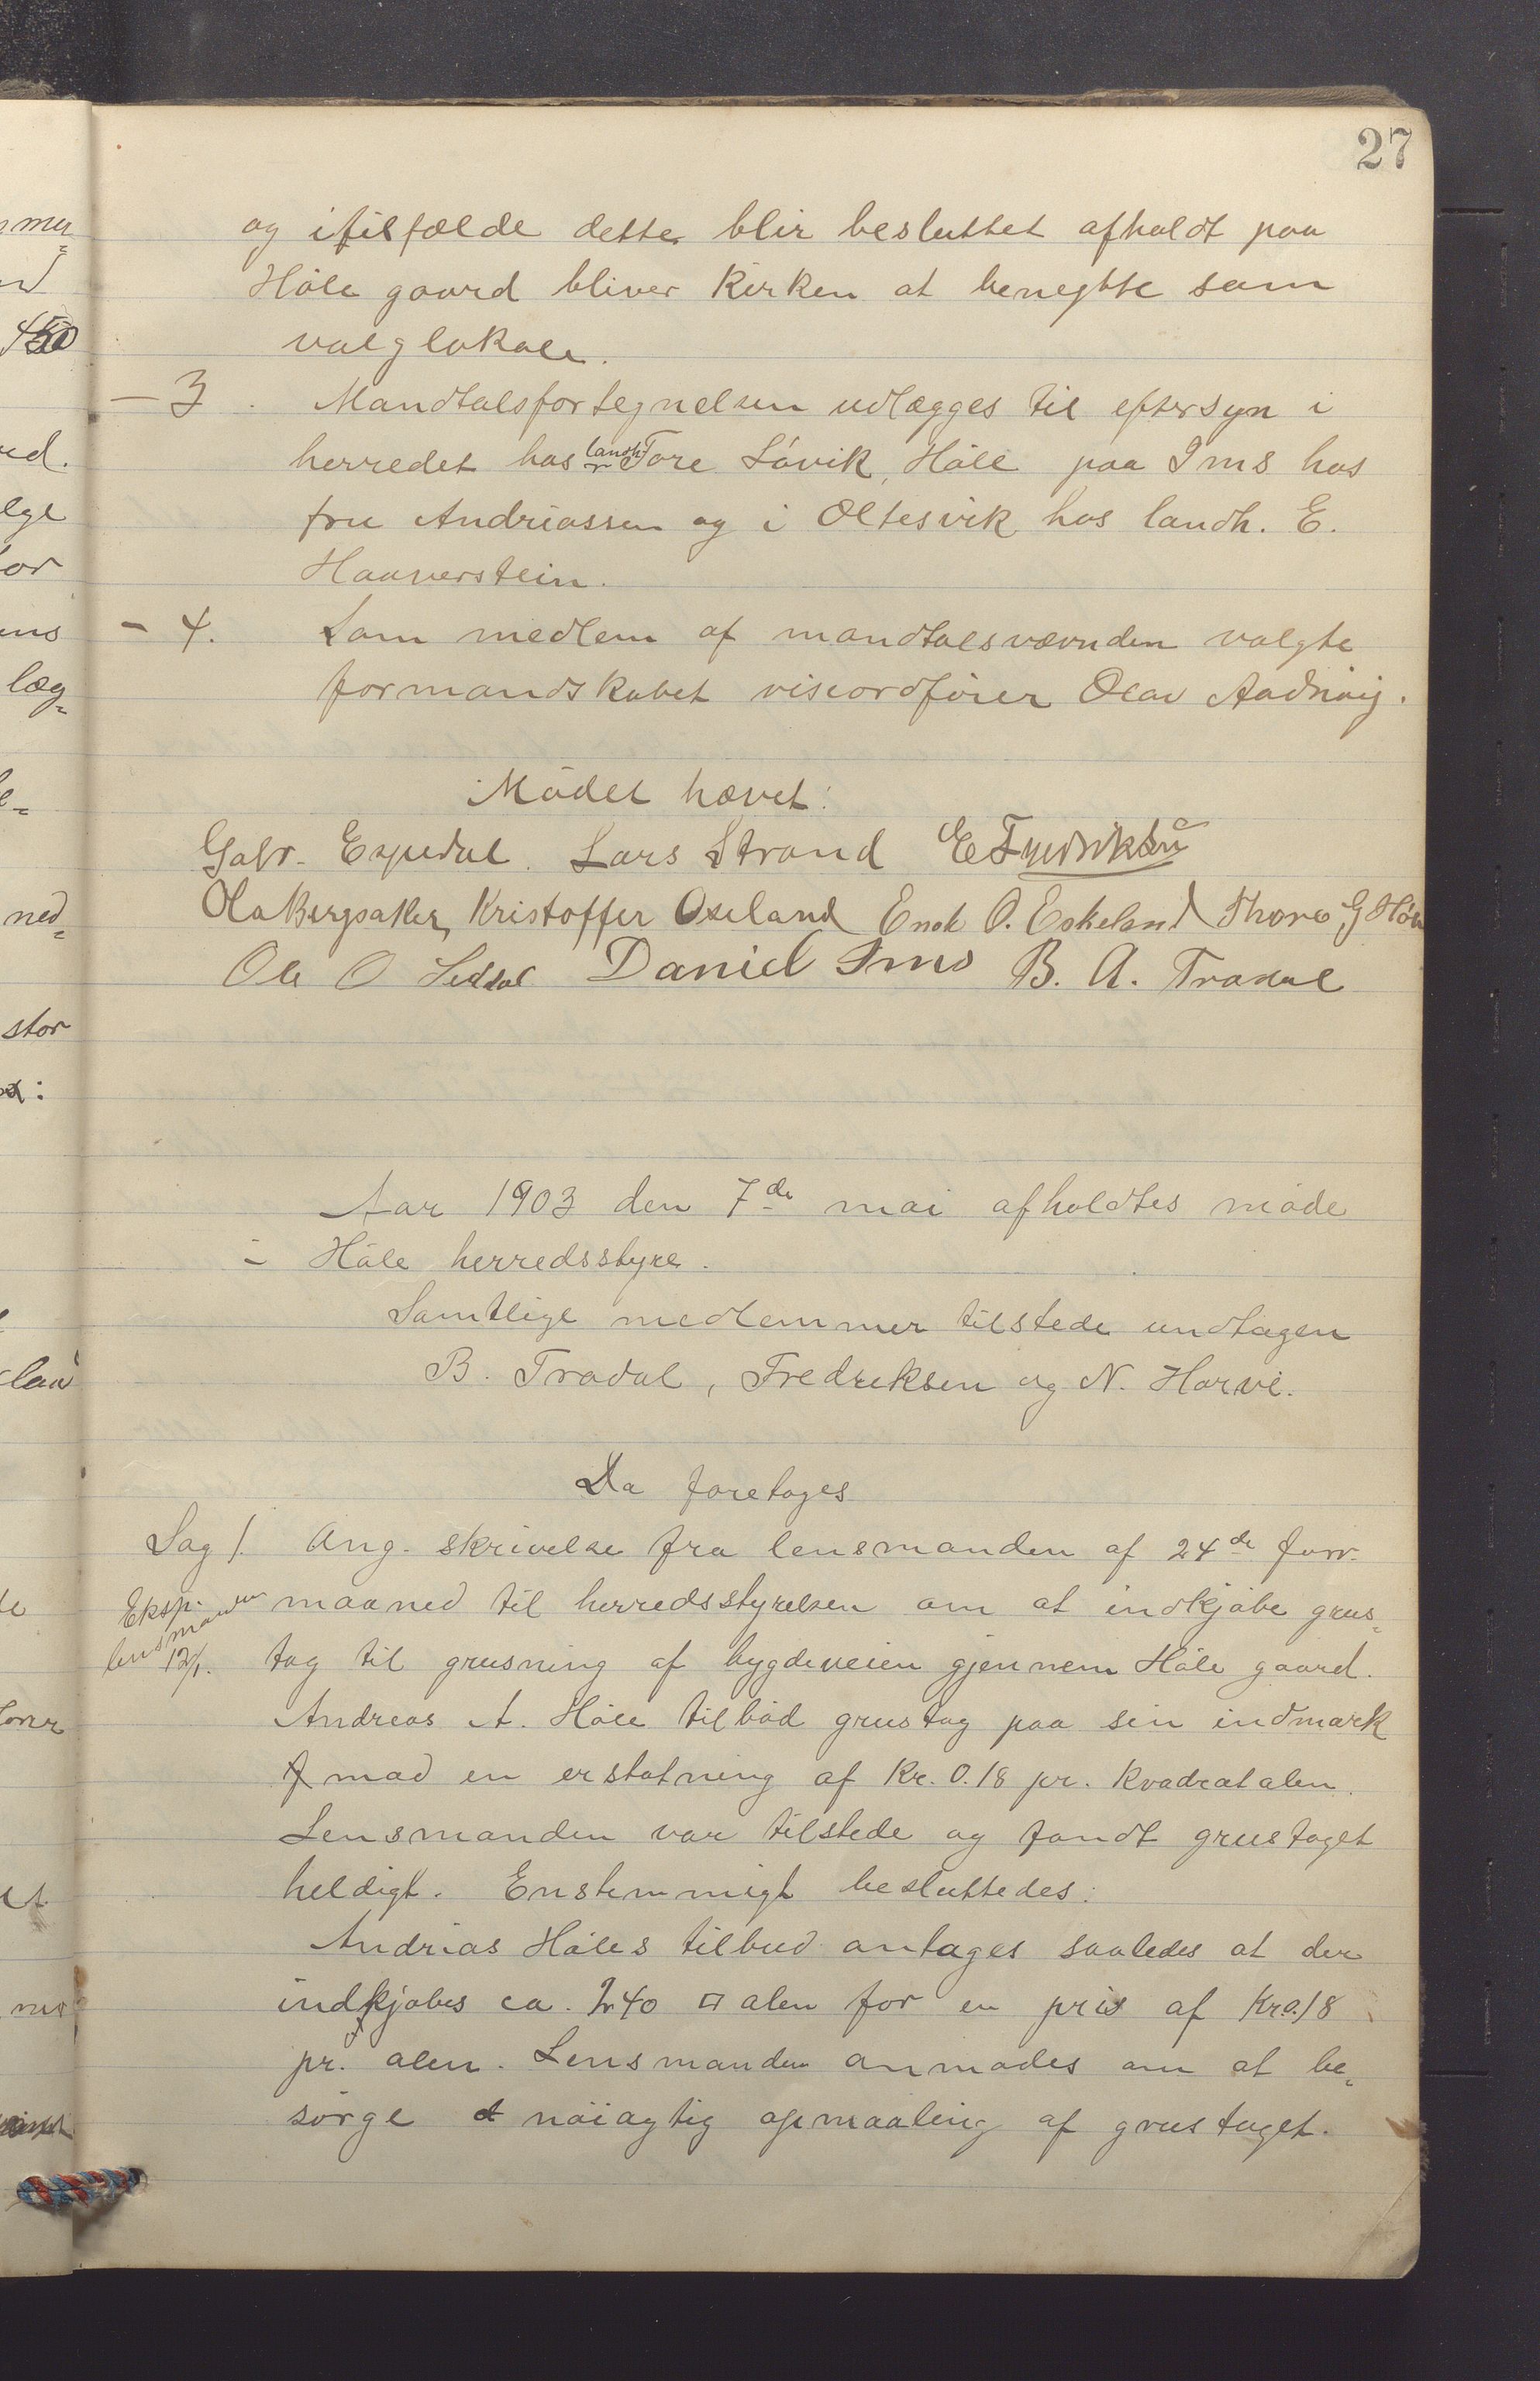 27
og i tilfælde dette blir besluttet afholdt paa
Høle gaard bliver kirken at benytte som
valglokale.
— 3. Mandtalsfortegnelsen udlægges til eftersyn i
herredet hos landh. Tore Løvik, Høle paa Ims hos
fru Andreassen og i Oltesvik hos landh. E.
Haaverstein.
- 4. Som medlem af mandtalsnævnden valgte
formandskabet viseordfører Olav Aadnøij.
Mødet hævet:
Gabr. Espedal. Lars Strand E Fredriksen
Ola Bergsaker, Kristoffer Oseland Enok O. Eskeland Thore G Høle
Ole O Seldal Daniel Ims B. A. Tradal
Aar 1903 den 7de mai afholdtes møde
i Høle herredsstyre.
Samtlige medlemmer tilstede undtagen
B. Tradal, Fredriksen og N. Harvi.
Da foretoges
Sag 1. Ang. skrivelse fra lensmanden af 24de forr.
Eksp. lensmanden 12/1.
maaned til herredsstyrelsen om at indkjøbe grus-
tag til grusning af bygdeveien gjennem Høle gaard.
Andreas A. Høle tilbød grustag paa sin indmark
mod en erstatning af Kr. 0.18 pr. kvadratalen.
Lensmanden var tilstede og fandt grustaget
heldigt. Enstemmigt besluttedes:
Andreas Høles tilbud antages saaledes at der
indkjøbes ca. 240 □ alen for en pris af Kr. 0.18
pr. alen. Lensmanden anmodes om at be-
sørge nøiagtig opmaaling af grustaget.